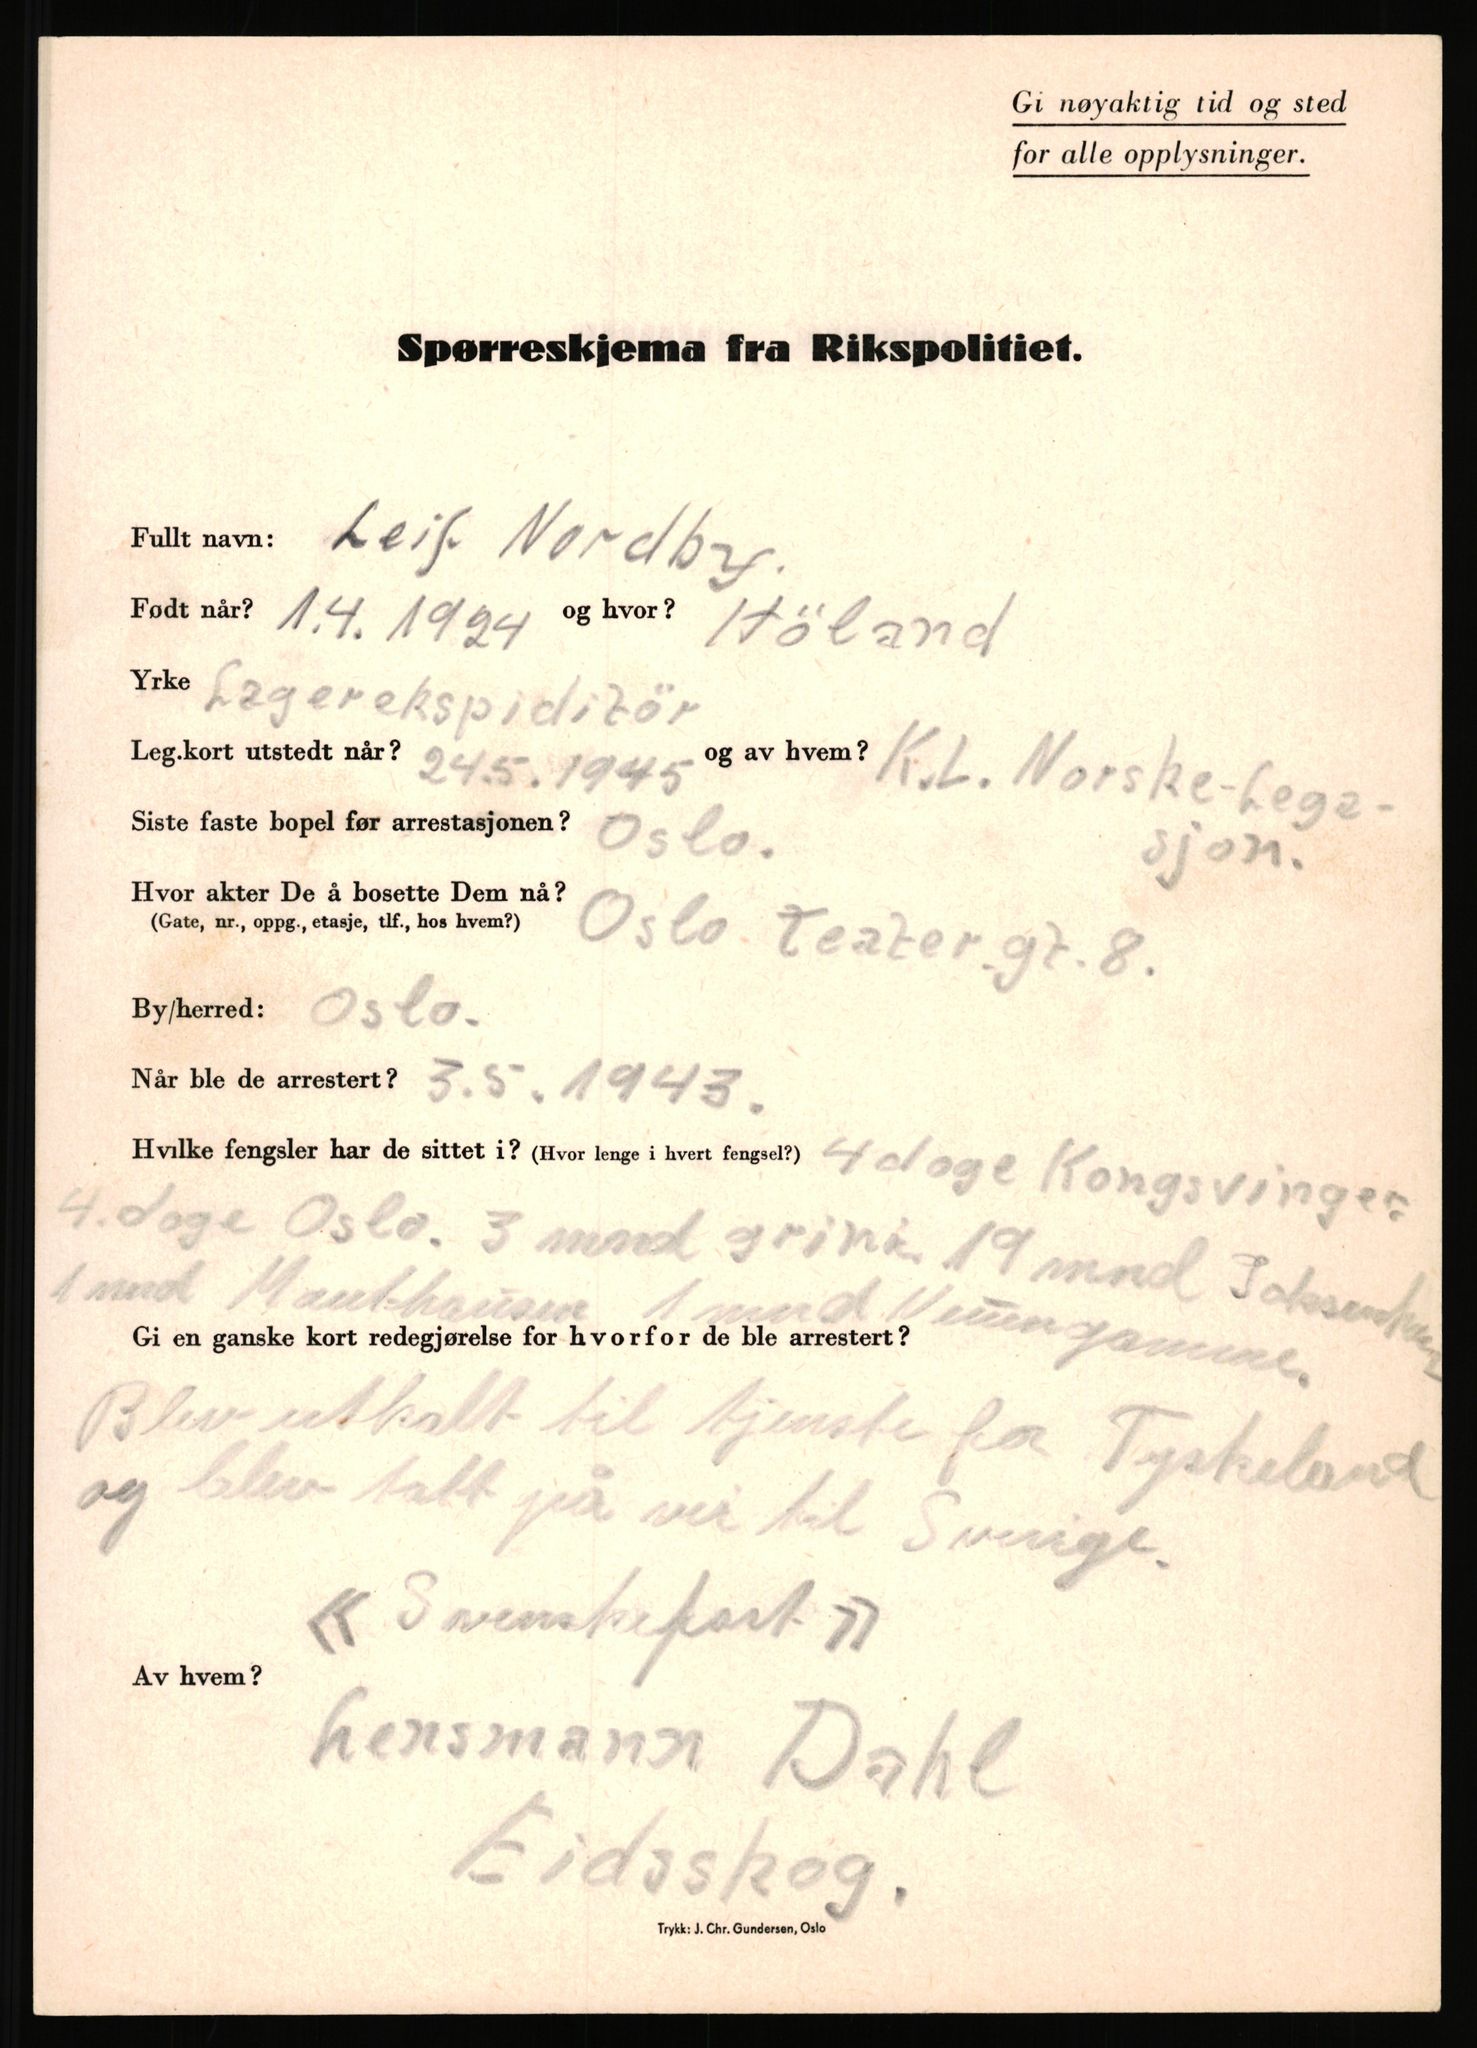 Gi nøyaktig tid og sted
for alle opplysninger.
Spørreskjema fra Rikspolitiet.
Fullt navn: Leif Nordby.
Født når? 1.4.1924 og hvor? Höland
Yrke Lagerekspiditör
Leg.kort utstedt når? 24.5.1945 og av hvem? K.L. Norske-Lega-
sjon.
Siste faste bopel før arrestasjonen? Oslo.
Hvor akter De å bosette Dem nå?
(Gate, nr., oppg., etasje, tlf., hos hvem?) Oslo Teater.gt.8.
By/herred: Oslo.
Når ble de arrestert? 3.5.1943.
Hvilke fengsler har de sittet i? (Hvor lenge i hvert fengsel?) 4 doge Kongsvinger
4.doge Oslo. 3 mnd grini. 19 mnd
1 mnd Mauthausen 1 mnd Neuengamme.
Gi en ganske kort redegjørelse for hvorfor de ble arrestert?
Blev utkalt til tjenste for Tyskeland
og blev tatt på vei til Sverige.
« Svensketort »
Av hvem?
Lensmann Dahl
Eidsskog.
Trykk: J. Chr. Gundersen, Oslo